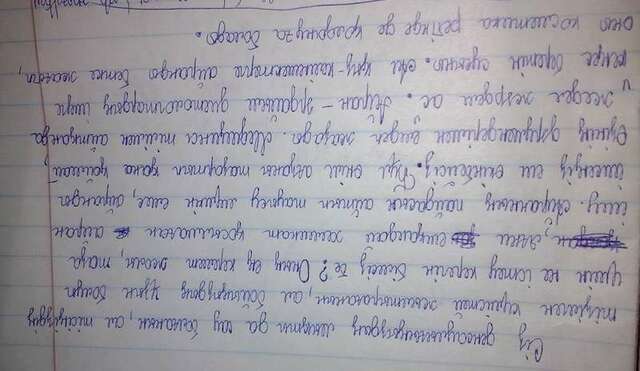 Сіз денсаулығыңыздың мықты да сау болғанын, ал тісіңіздің
тізімен күмістей жылтырағанын, ал бойыңыздың ұзын болуы
үшін не істеу керегін білесіз бе? Оның ең керемет жолы, таза
яғни ешқандай химикат қосылмаған айран
ішу. Айранның пайдасын айтып тауысу мүмкін емес, айранды
ішсеңіз еш өкінбейсіз. Бұл өнім ағзаны тазартып қана қоймай,
өзінің дәрумендерімен емдеп жазады. Медицина тілімен айтқанда
"жедел жәрдем ас". Айран – әрдайым диетологтардың ішуге
кеңес беретін сусыны. Ал қыз-келіншектерге айранды бетке жағып,
оны косметика ретінде де қолдануға болады.